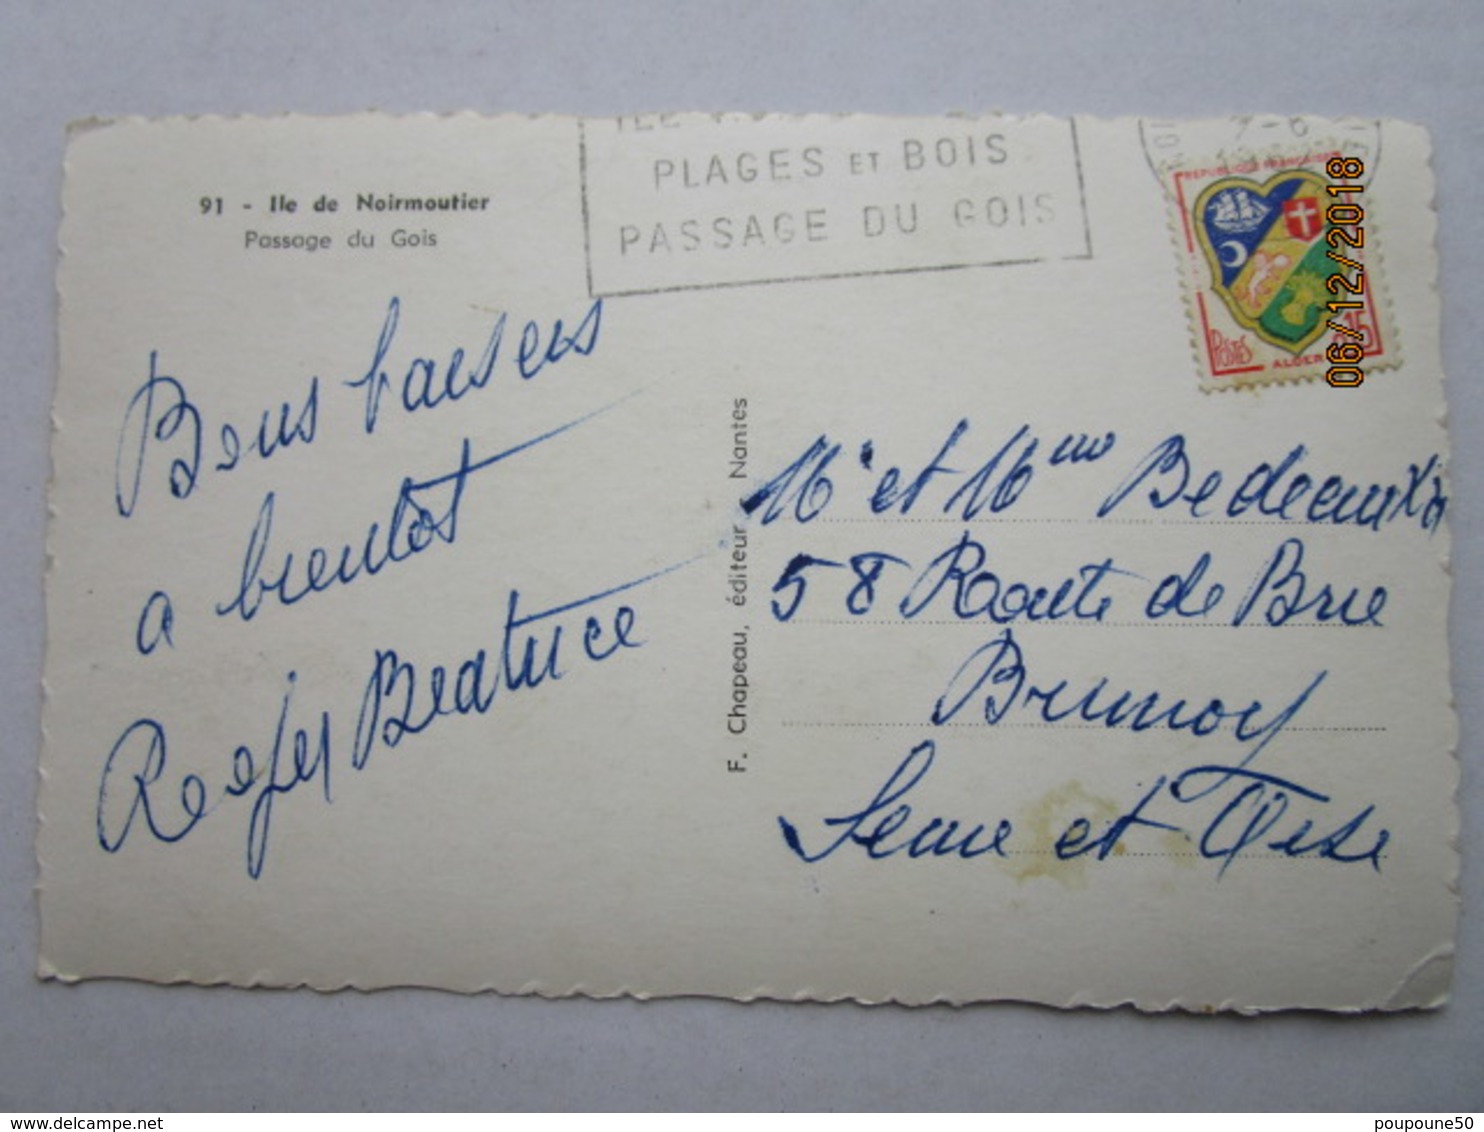 91 - Ile de Noirmoutier
Passage du Gois
PLAGES ET BOIS
PASSAGE DU GOIS
7-6
REPUBLIQUE FRANCAISE
POSTES
ALGER
0,15
06/12/2018
Bons baisers
a bientot
Roger Beatrice
F. Chapeau, éditeur Nantes
Mr et Mme Bedeaux
58 Route de Brie
Brunoy
Seine et Oise
poupoune50